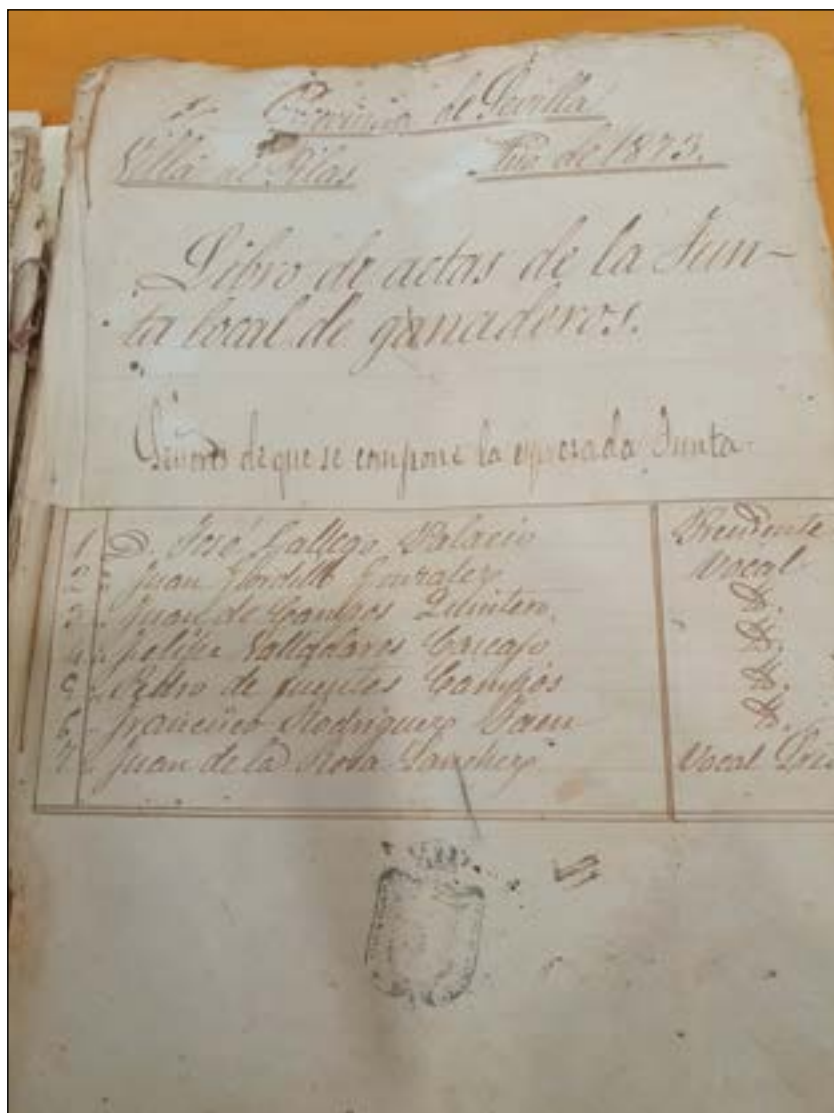 Provincia de Sevilla
Villa de Pilas Año de 1873.
Libro de actas de la Jun-
ta local de ganaderos.
Señores de que se compone la expresada Junta.
1 D. José Gallego Palacio Presidente
2 " Juan Gonzalez Vocal
3 " Juan de Campos Quintero.
4 " Felipe Valladares
5 " Pedro de Fuentes Campos
6 " Francisco Rodriguez
7 " Juan de la Rosa Sanchez Vocal